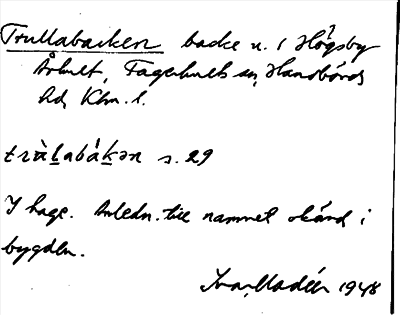 Trullabacken backe n. i Högsby
Århult, Fagerhults sn, Handbörds
hd, Klm. l.
tràlabák̲ən s. 29
I hage. Anledn. till namnet okänd i
bygden.
Ivar Modéer 1948